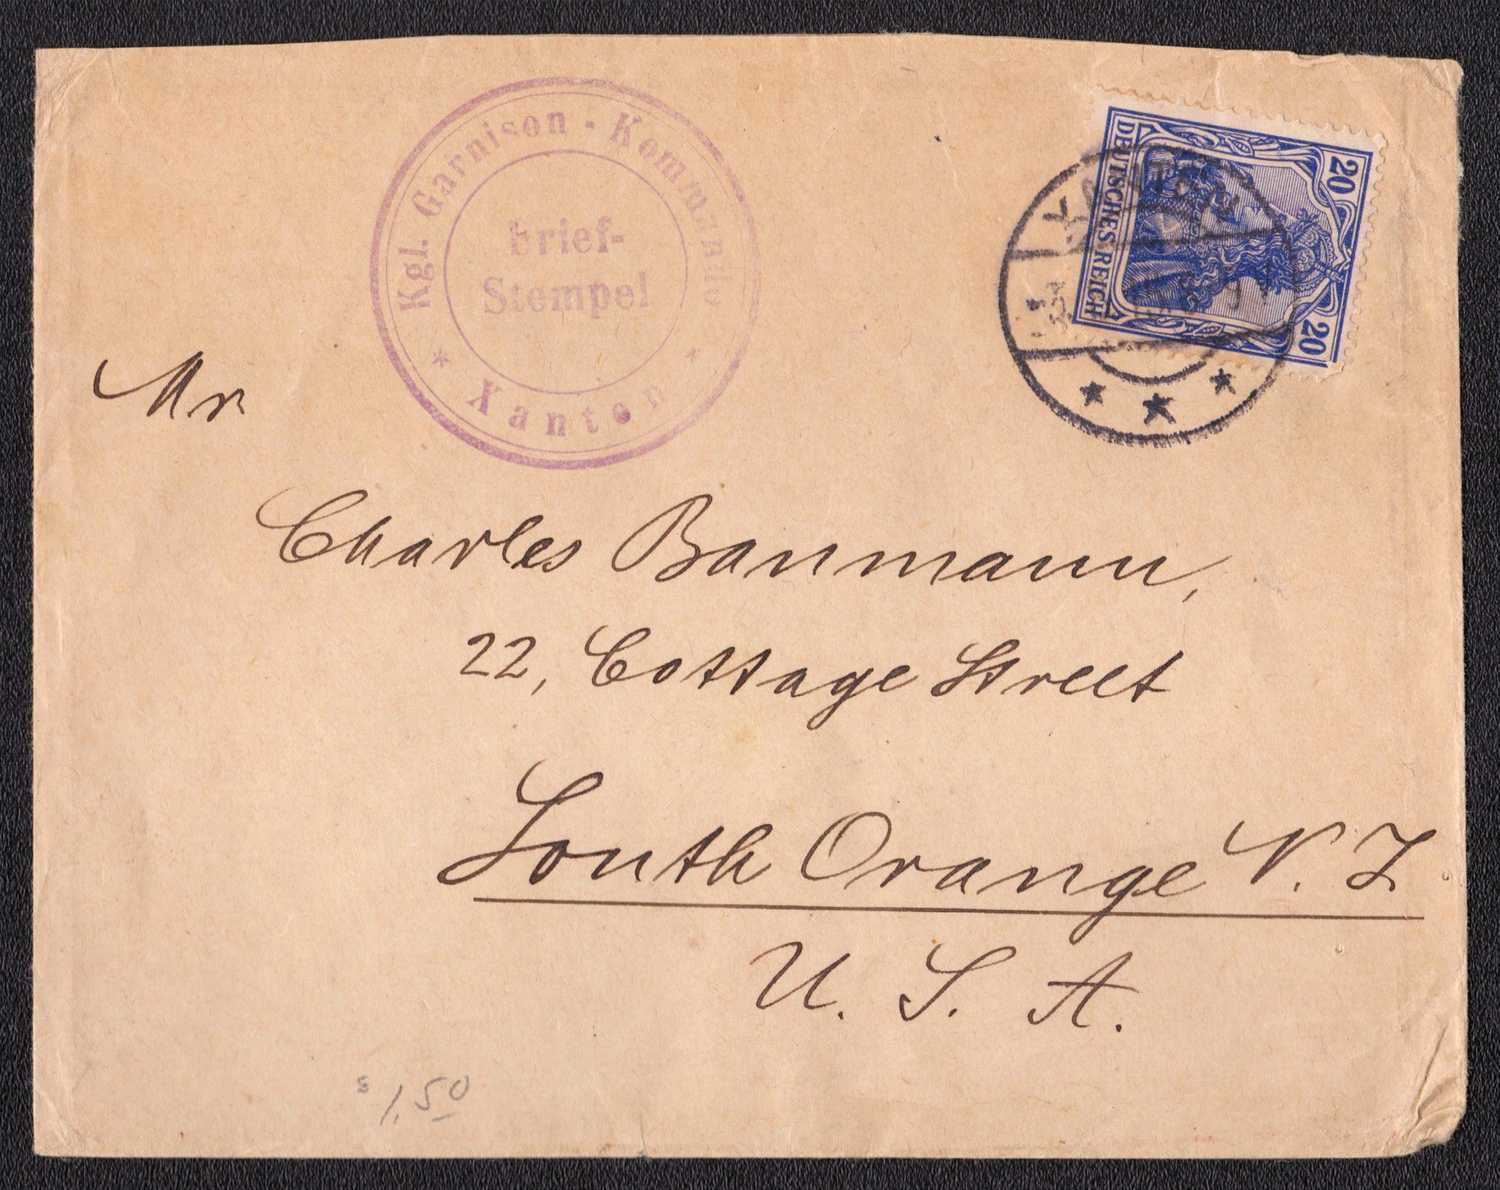 Kgl. Garnison - Kommando
Brief-
Stempel
* Xanten *
20
DEUTSCHES REICH
20
XANTEN
* * *
Mr
Charles Banmann,
22, Cottage Street
South Orange N. J.
U. S. A.
$1,50